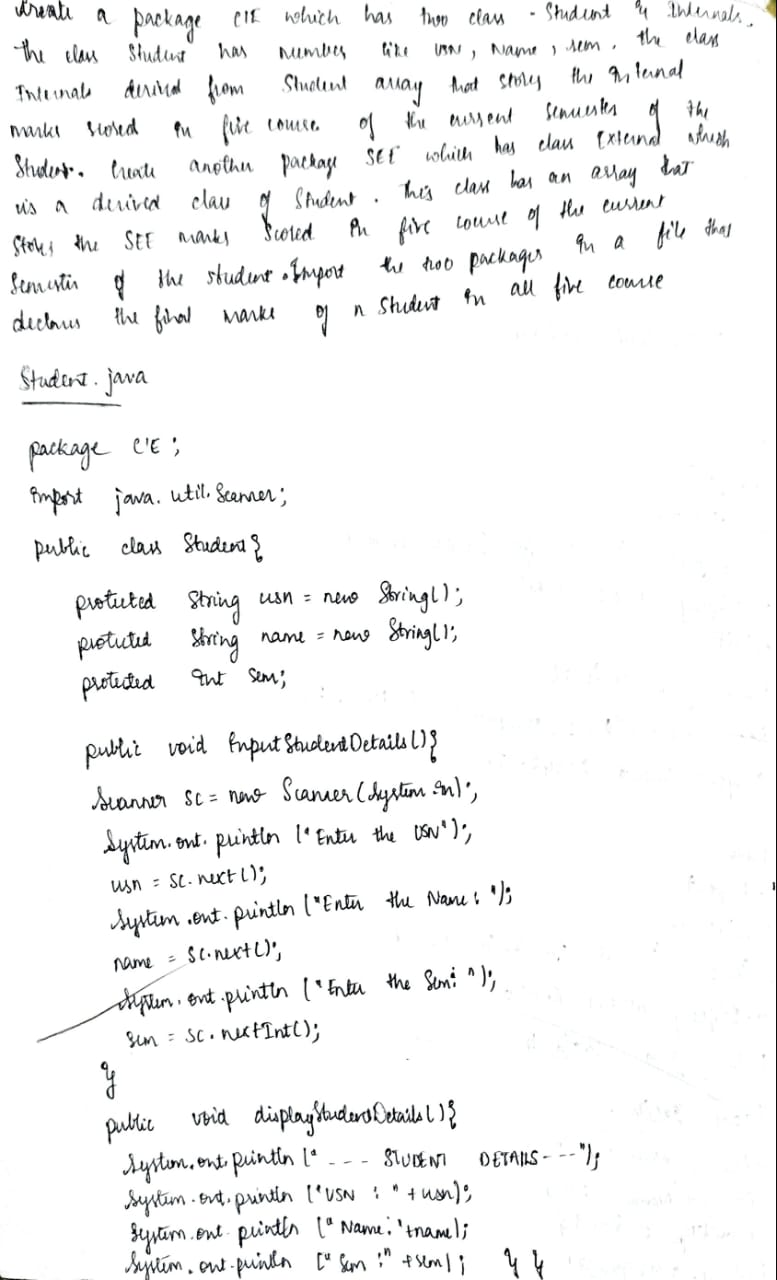 Create a package CIE which has two class - Student & Internals.
The class Student has number like usn, Name, sem. the class
Internals derived from Student array that stores the Internal
marks scored in five course of the current semester of the
Student. Create another package SEE which has class External which
is a derived class of Student. This class has an array that
stores the SEE marks scored in five course of the current
Semester of the student. Import the two packages in a file that
declares the final marks of n Student in all five course
Student.java
package CIE;
import java.util.Scanner;
public class Student{
protected String usn = new String();
protected String name = new String();
protected int sem;
public void InputStudentDetails(){
Scanner sc = new Scanner(System.in);
System.out.println("Enter the USN");
usn = sc.next();
System.out.println("Enter the Name: ");
name = sc.next();
System.out.println("Enter the Sem: ");
sem = sc.nextInt();
}
public void displayStudentDetails(){
System.out.println("--- STUDENT DETAILS---");
System.out.println("USN : " + usn);
System.out.println("Name:"+name);
System.out.println("Sem :" +sem); } }